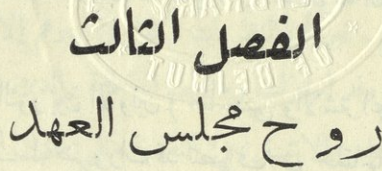 الفصل الثالث
روح مجلس العهد